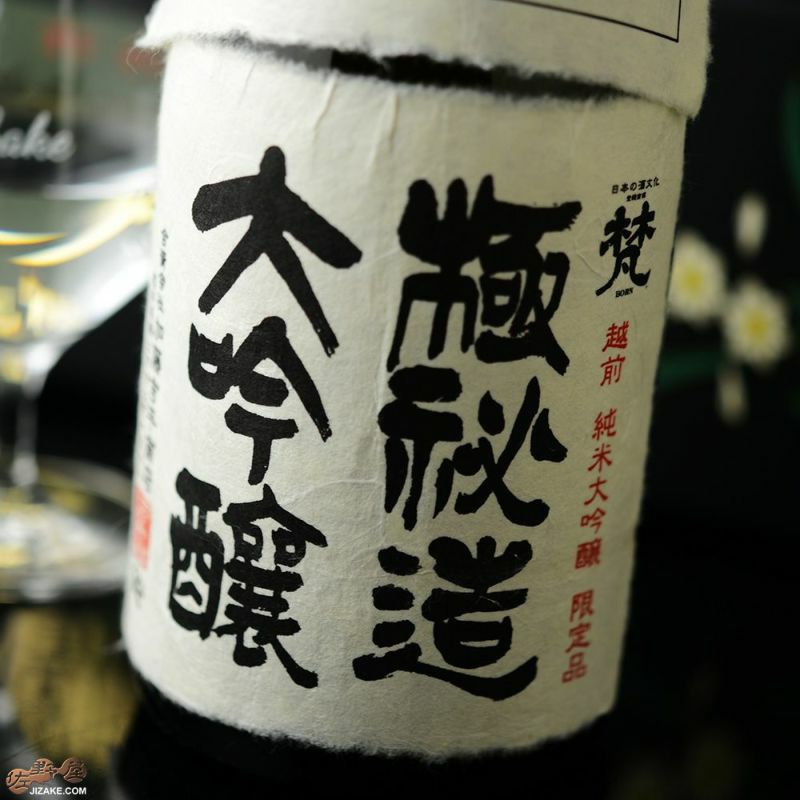 日本の酒文化
梵
BORN
越前 純米大吟醸 限定品
極秘造
大吟醸
ake
佐野屋
JIZAKE.COM